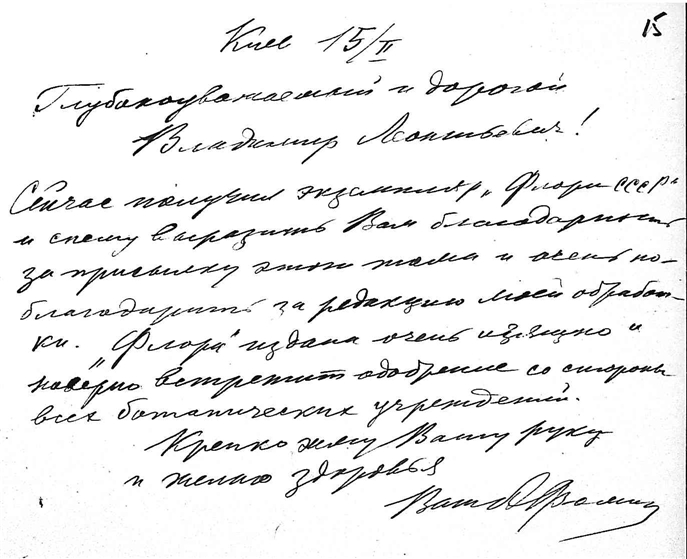 15
Киев 15/II
Глубокоуважаемый и дорогой
Владимир Леонтьевич!
Сейчас получил экземпляр „Флори СССР"
и спешу выразить Вам благодарность
за присылку этого тома и очень по-
благодарить за редакцию моей обработ-
ки. „Флора" издана очень изящно и
наверно встретит одобрение со стороны
всех ботанических учреждений.
Крепко жму Вашу руку
и желаю здоровья
Ваш А Фомин